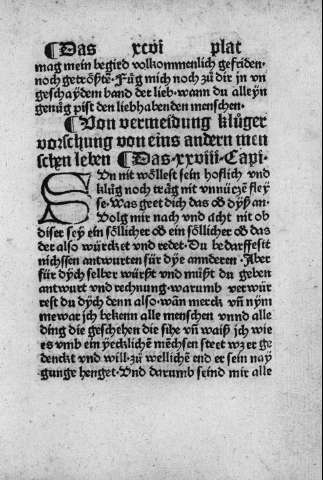 ¶ Das xcvi plat
mag mein begird volkommenlich gefriden.
noch getrößtē. Fůg mich noch zů dir jn vn
geschaydem band der lieb. wann du alleyn
genůg pist den liebhabenden menschen.
¶ Von vermeidung klůger
vorschung von eins andern men
schen leben ¶ Das. xxviii. Capi.
SUn nit wöllest sein hoflich vnd
klůg noch trag nit vnnüczē fley
se. Was geet dich das ob dyß an.
Volg mir nach vnd acht nit ob
diser sey ein söllicher ob ein söllicher ob das
der also würcket vnd redet. Du bedarffestt
nichssen antwurten für dye annderen. Aber
für dych selber würßt vnd můßt du geben
antwurt vnd rechnung. warumb verwür
rest du dych denn also. wān merck vñ nym
mewar jch bekenn alle menschen vnnd alle
ding die geschehen die sihe vñ waiß jch wie
es vmb ein ÿecklichē mēschen steet wz er ge
denckt vnd will. zů wellichē end er sein nay
gunge henget. Vnd darumb seind mir alle